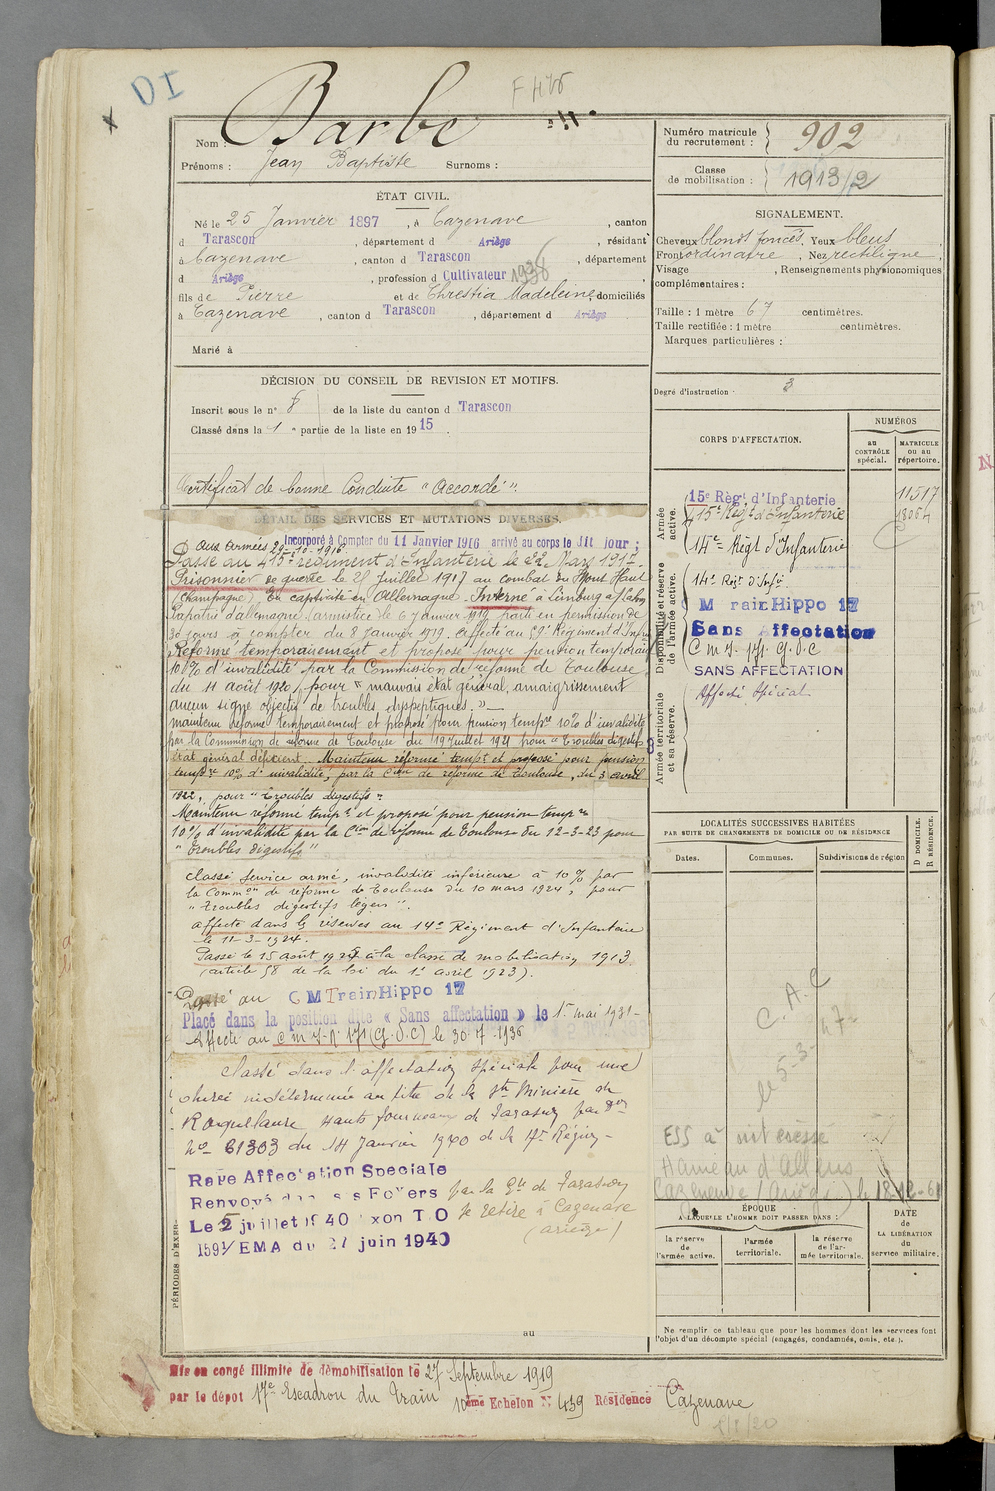 DI
Nom : Barbe
Prénoms : Jean Baptiste Surnoms :
Numéro matricule du recrutement : 902
Classe de mobilisation : 1913/2
ÉTAT CIVIL.
Né le 25 Janvier 1897, à Cazenave, canton
d Tarascon, département d Ariège, résidant
à Cazenave, canton d Tarascon, département
d Ariège, profession d Cultivateur 1938
fils de Pierre et de Threstia Madeleine, domiciliés
à Cazenave, canton d Tarascon, département d Ariège
Marié à
SIGNALEMENT.
Cheveux blonds foncés. Yeux bleus,
Front ordinaire, Nez rectiligne,
Visage , Renseignements physionomiques
complémentaires :
Taille : 1 mètre 67 centimètres.
Taille rectifiée : 1 mètre centimètres.
Marques particulières :
Degré d'instruction 3
DÉCISION DU CONSEIL DE REVISION ET MOTIFS.
Inscrit sous le n° 8 de la liste du canton d Tarascon
Classé dans la 1e partie de la liste en 1915.
Certificat de bonne Conduite "Accordé".
DÉTAIL DES SERVICES ET MUTATIONS DIVERSES.
Incorporé à Compter du 11 Janvier 1916 arrivé au corps le dit jour ;
Aux Armées 29-10-1916.
Passé au 415e régiment d'Infanterie le 22 Mars 1917.
Prisonnier de guerre le 25 Juillet 1917 au combat du Mont Haut
(Champagne) En captivité en Allemagne Interné à Limburg a/ Lahn
Rapatrié d'allemagne (armistice) le 6 janvier 1919 parti en permission de
30 jours à compter du 8 janvier 1919. affecté au 59e Régiment d'Infrie
Réformé temporairement et proposé pour pension temporaire
10% d'invalidité par la Commission de réforme de Toulouse
du 11 août 1920, pour "mauvais état général, amaigrissement
aucun signe objectif de troubles dyspeptiques."
maintenu réformé temporairement et proposé pour pension tempre 10% d'invalidité
par la Commission de réforme de Toulouse du 19 Juillet 1921 pour "Troubles digestifs
état général déficient. Maintenu réformé tempt et proposé pour pension
tempre 10% d'invalidité, par la Cion de réforme de Toulouse, du 3 avril
1922, pour "troubles digestifs"
Maintenu réformé tempt et proposé pour pension tempre
10% d'invalidité par la Cion de réforme de Toulouse du 12-3-23 pour
"troubles digestifs"
Classé Service armé, invalidité inférieure à 10% par
la Common de réforme de Toulouse du 10 mars 1924, pour
"troubles digestifs légers".
affecté dans les réserves au 14e Régiment d'Infanterie
le 11-3-1924.
Passé le 15 août 1927 à la classe de mobilisation 1913
(article 58 de la loi du 1er avril 1923).
Passé au C M Train Hippo 17
Placé dans la position dite « Sans affectation » le 1er mai 1931-
Affecté au C m I n° 171 (G.V.C) le 30.7.1936
Classé dans l'affectation spéciale pour une
durée indéterminée au titre de la Sté Minière de
Roquelaure Hauts fourneaux de Tarascon par
No 61303 du 14 Janvier 1940 de la 17e Région-
Rayé Affectation Speciale
Renvoyé dans ses Foyers par la Gie de Tarascon
Le 2 juillet 1940 T.O Se retire à Cazenave
1591/EMA du 27 juin 1940 (ariège)
PÉRIODES D'EXER
au
CORPS D'AFFECTATION.
NUMÉROS
au CONTRÔLE spécial.
MATRICULE ou au répertoire.
Armée active.
15e Règt d'Infanterie 11517
415e Régt d'Infanterie 18064
14e Régt d'Infanterie
Disponibilité et réserve de l'armée active.
14e Régt d'Infie
M Train Hippo 17
Sans Affectation
C m I. 171. G.V.C
SANS AFFECTATION
Affecté Spécial.
Armée territoriale et sa réserve.
LOCALITÉS SUCCESSIVES HABITÉES
PAR SUITE DE CHANGEMENTS DE DOMICILE OU DE RÉSIDENCE
D DOMICILE. R RÉSIDENCE.
Dates. Communes. Subdivisions de région
C.A.C
le 5-3-47-
ESS à intéressé
Hameau d'Allens
Cazenave (Ariège) le 18-12-61
ÉPOQUE
A LAQUELLE L'HOMME DOIT PASSER DANS :
la réserve de l'armée active.
l'armée territoriale.
la réserve de l'armée territoriale.
DATE de LA LIBÉRATION du service militaire.
Ne remplir ce tableau que pour les hommes dont les services font
l'objet d'un décompte spécial (engagés, condamnés, omis, etc.).
Mis en congé illimité de démobilisation le 27 Septembre 1919
par le dépot 17e Escadron du Train 10ème Echelon N° 459 Résidence Cazenave